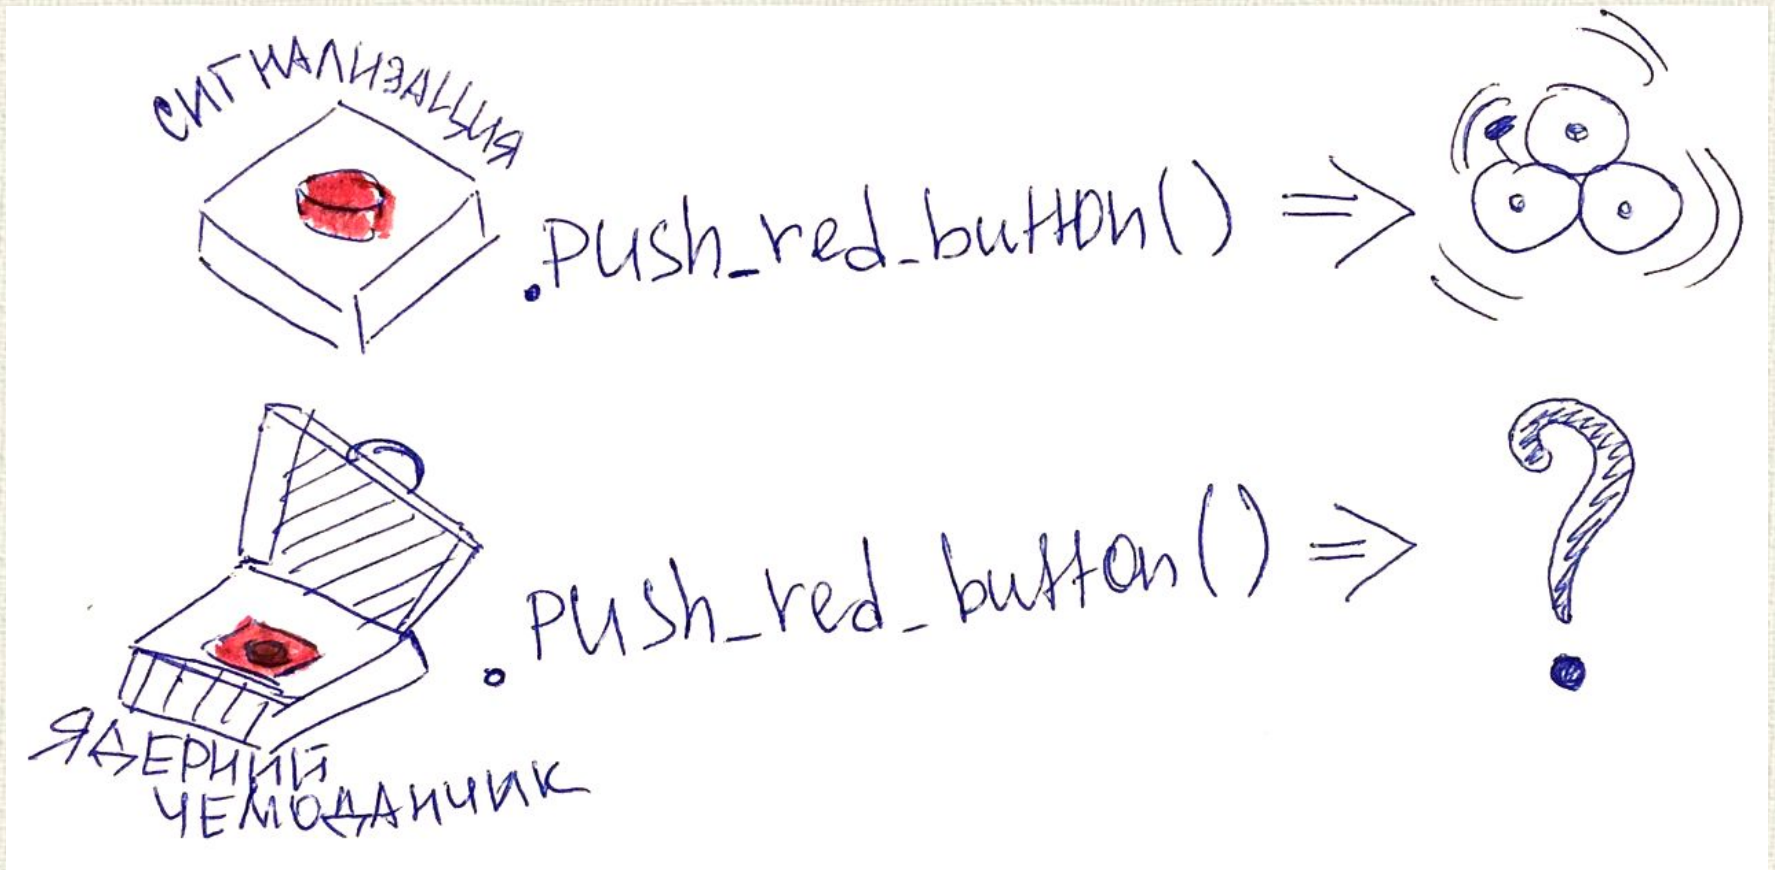 СИГНАЛИЗАЦИЯ
.push_red_button() =>
.push_red_button() => ?
ЯДЕРНИЙ
ЧЕМОДАНЧИК